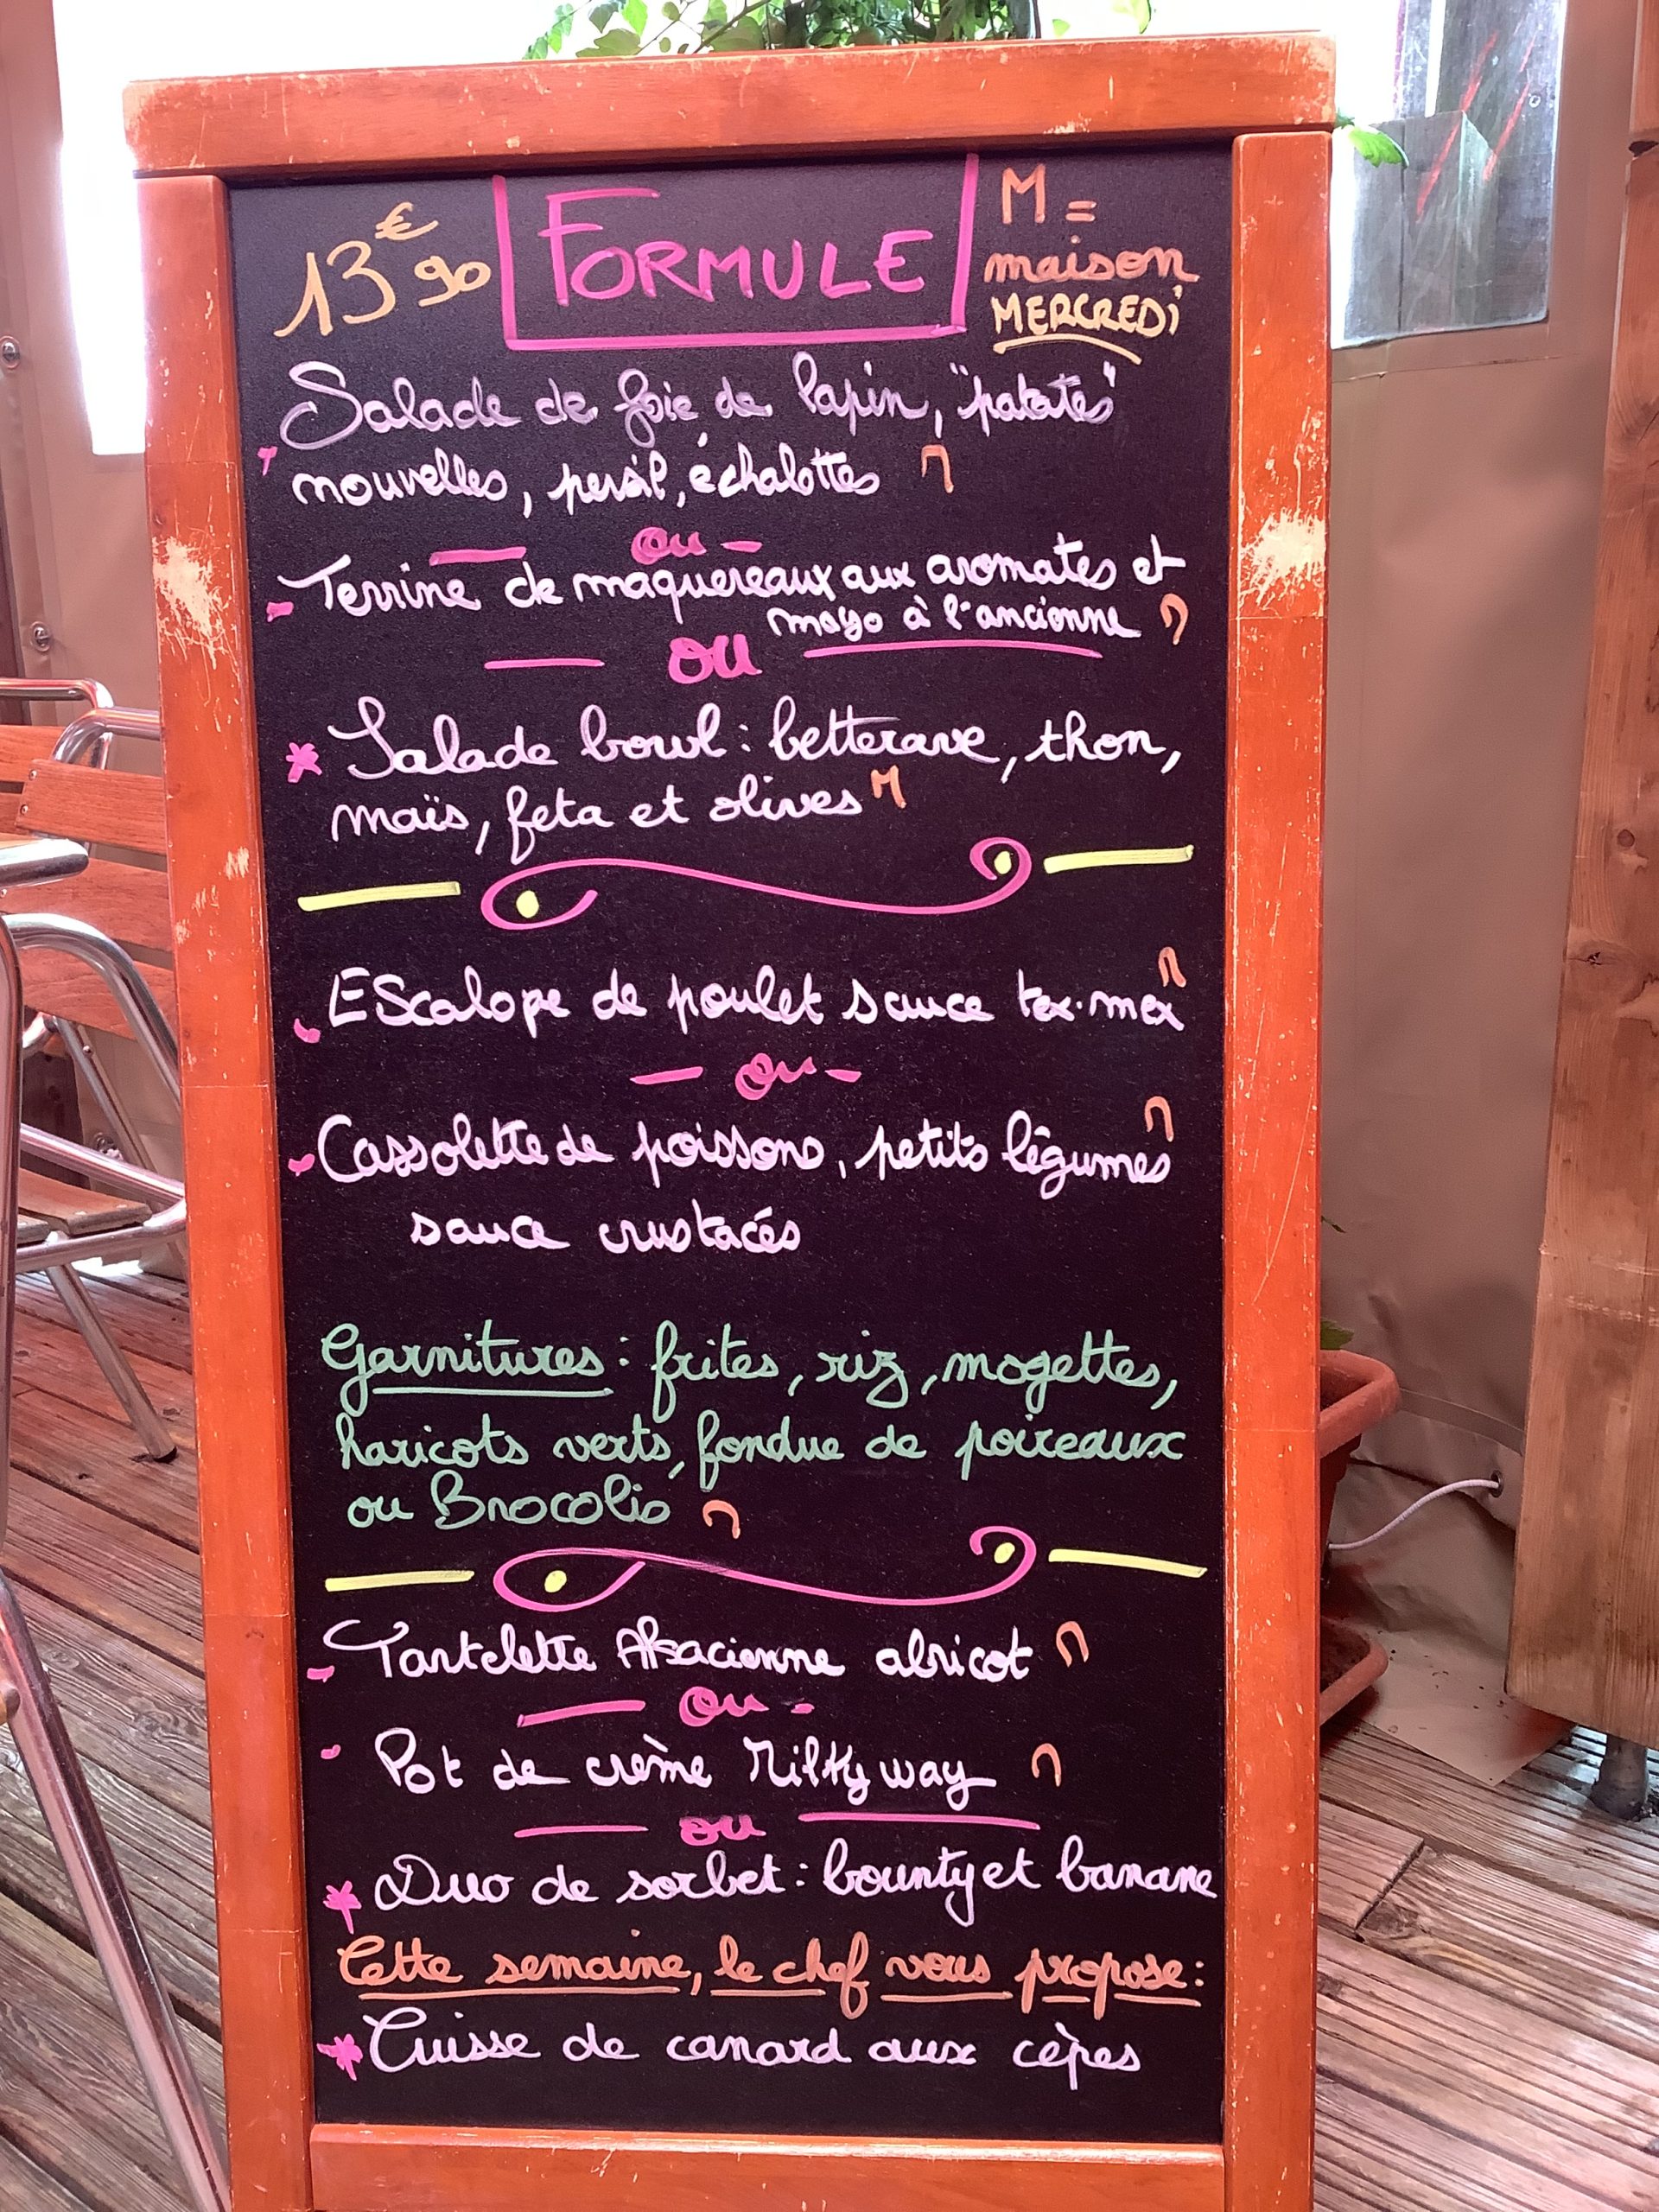 13€90 FORMULE M =
maison
MERCREDI
Salade de foie de lapin, "patates"
nouvelles, persil, échalottes M
ou
- Terrine de maquereaux aux aromates et
mayo à l'ancienne M
ou
* Salade bowl : betterave, thon,
maïs, feta et olives M
- Escalope de poulet sauce tex-mex M
ou
- Cassolette de poissons, petits légumes M
sauce crustacés
Garnitures : frites, riz, mogettes,
haricots verts, fondue de poireaux
ou Brocolis M
- Tartelette Alsacienne abricot M
ou
- Pot de crème Milky way M
ou
* Duo de sorbet : bounty et banane
Cette semaine, le chef vous propose :
* Cuisse de canard aux cèpes